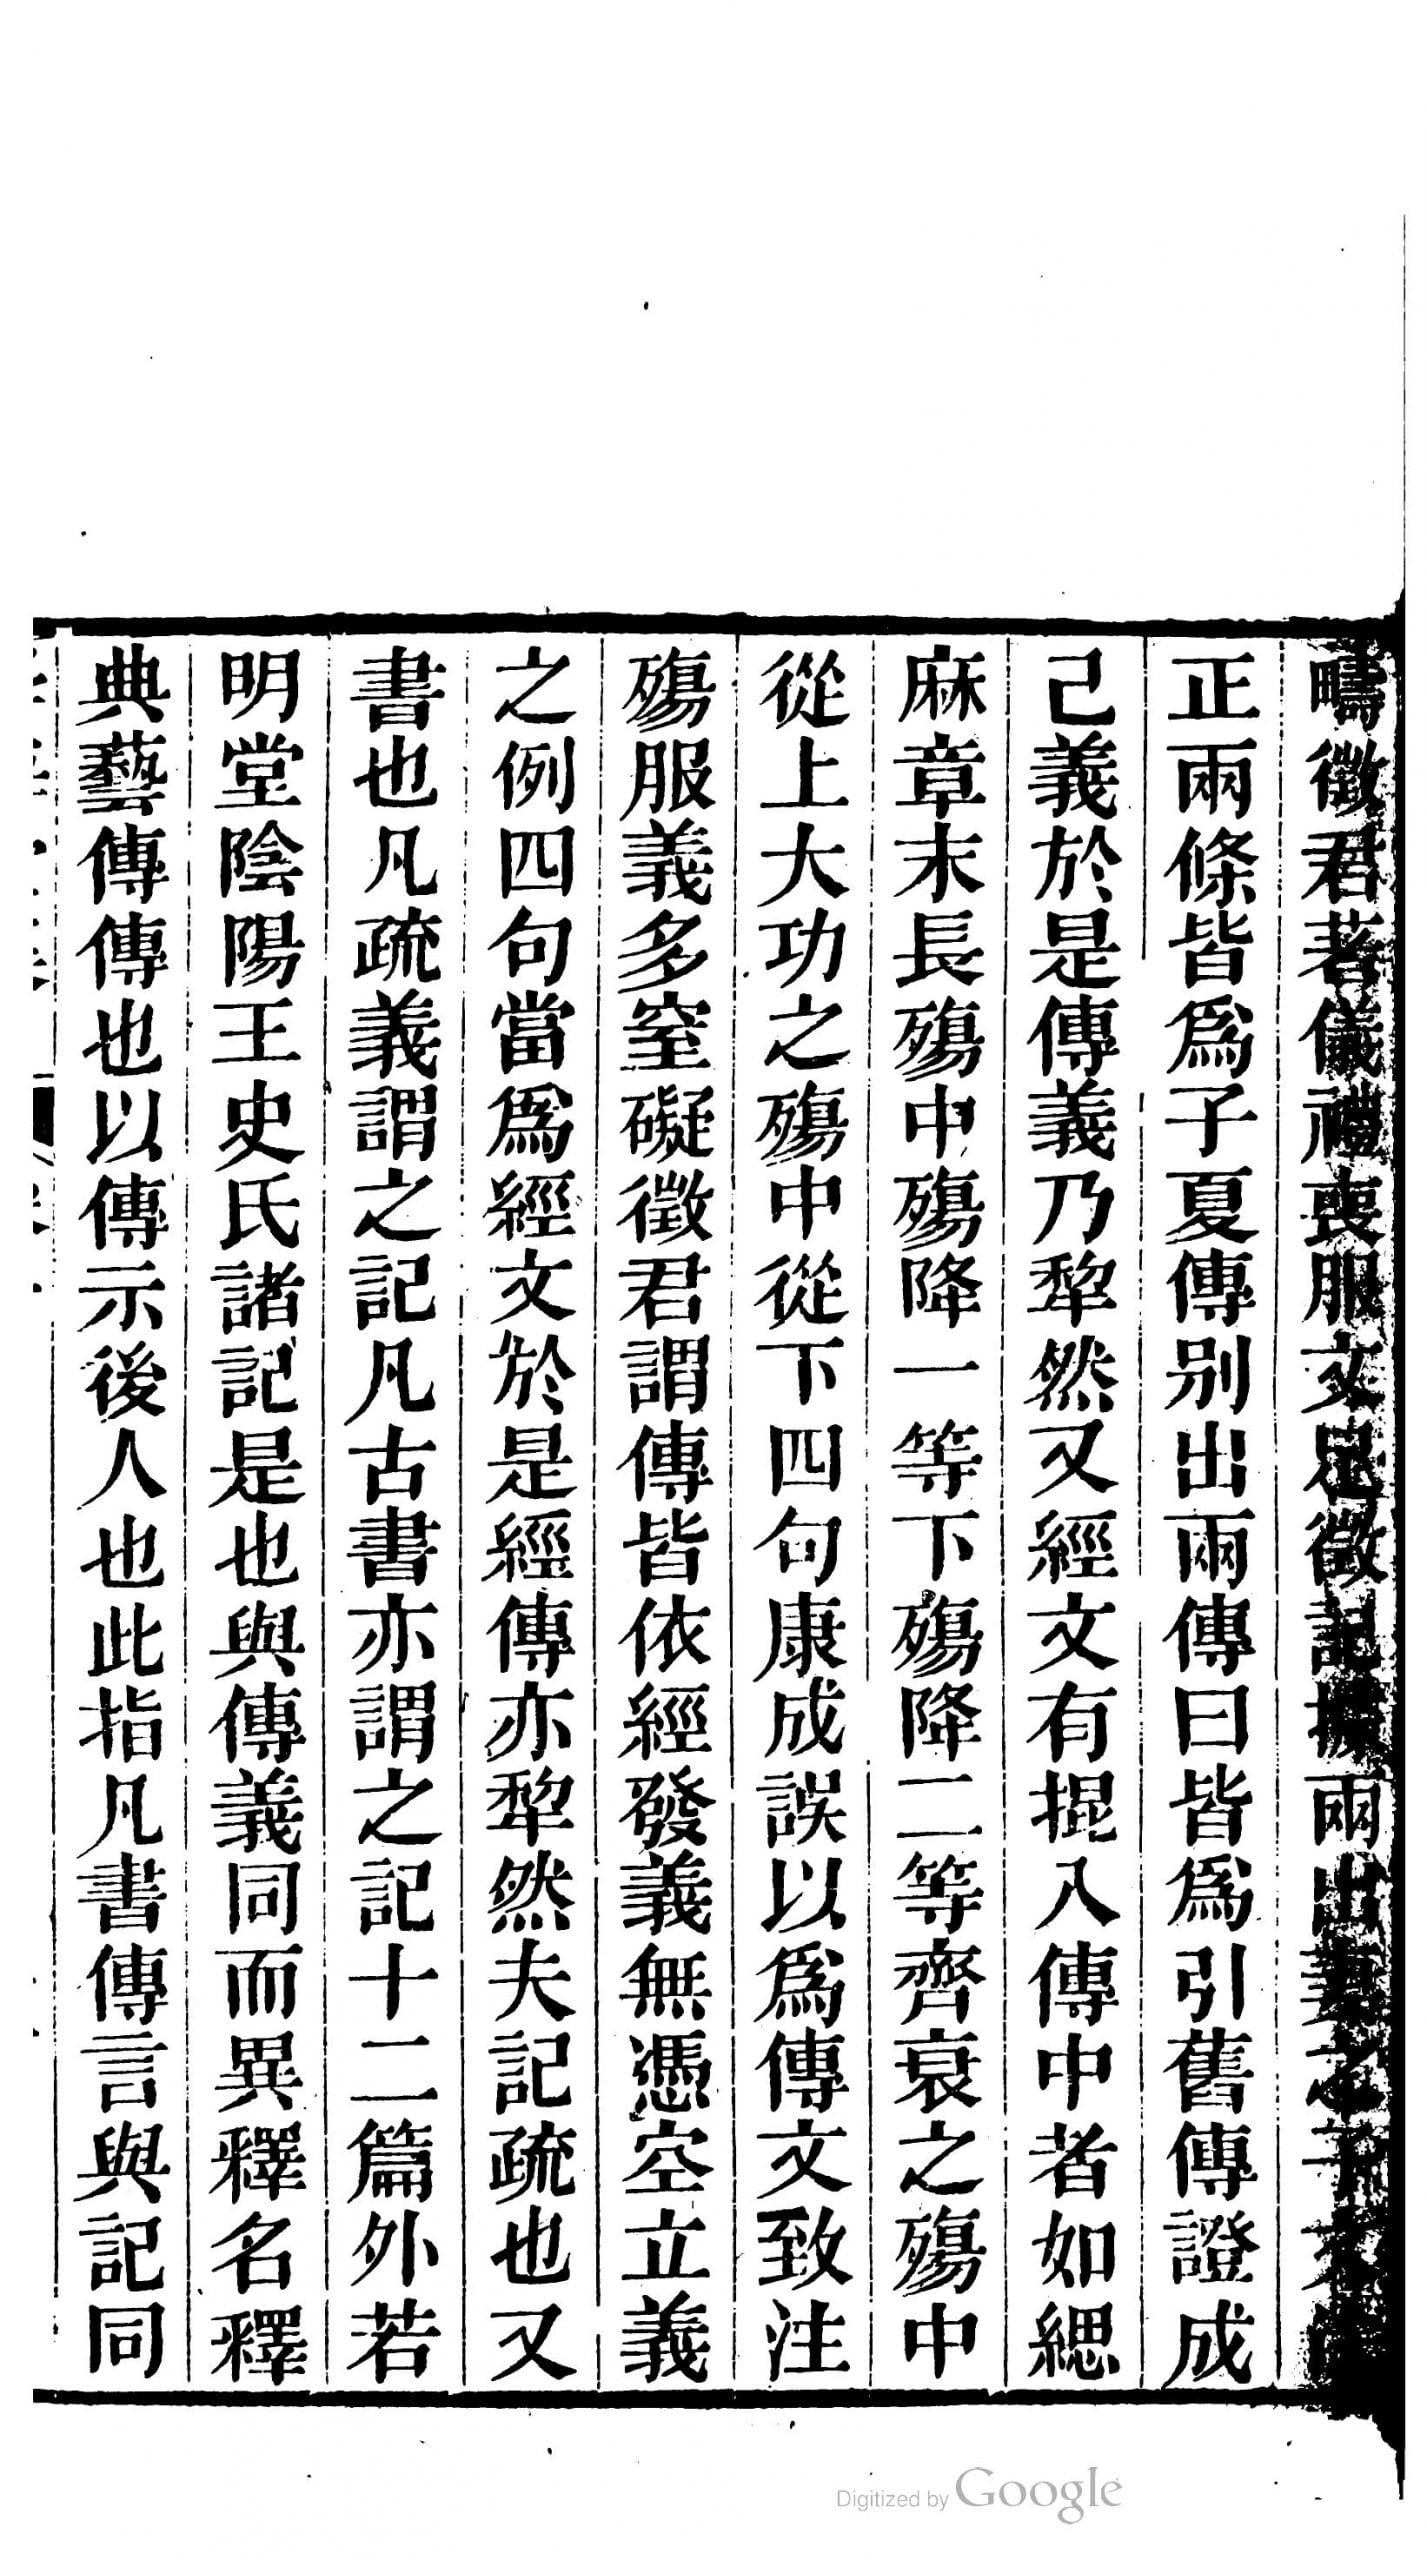 疇徵君著儀禮喪服文足徵記據兩出妻之子
正兩條皆爲子夏傳別出兩傳曰皆爲引舊傳證成
己義於是傳義乃犂然又經文有掍入傳中者如緦
麻章末長殤中殤降一等下殤降二等齊衰之殤中
從上大功之殤中從下四句康成誤以爲傳文致注
殤服義多窒礙徵君謂傳皆依經發義無憑空立義
之例四句當爲經文於是經傳亦犂然夫記疏也又
書也凡疏義謂之記凡古書亦謂之記十二篇外若
明堂陰陽王史氏諸記是也與傳義同而異釋名釋
典藝傳傳也以傳示後人也此指凡書傳言與記同
Digitized by Google